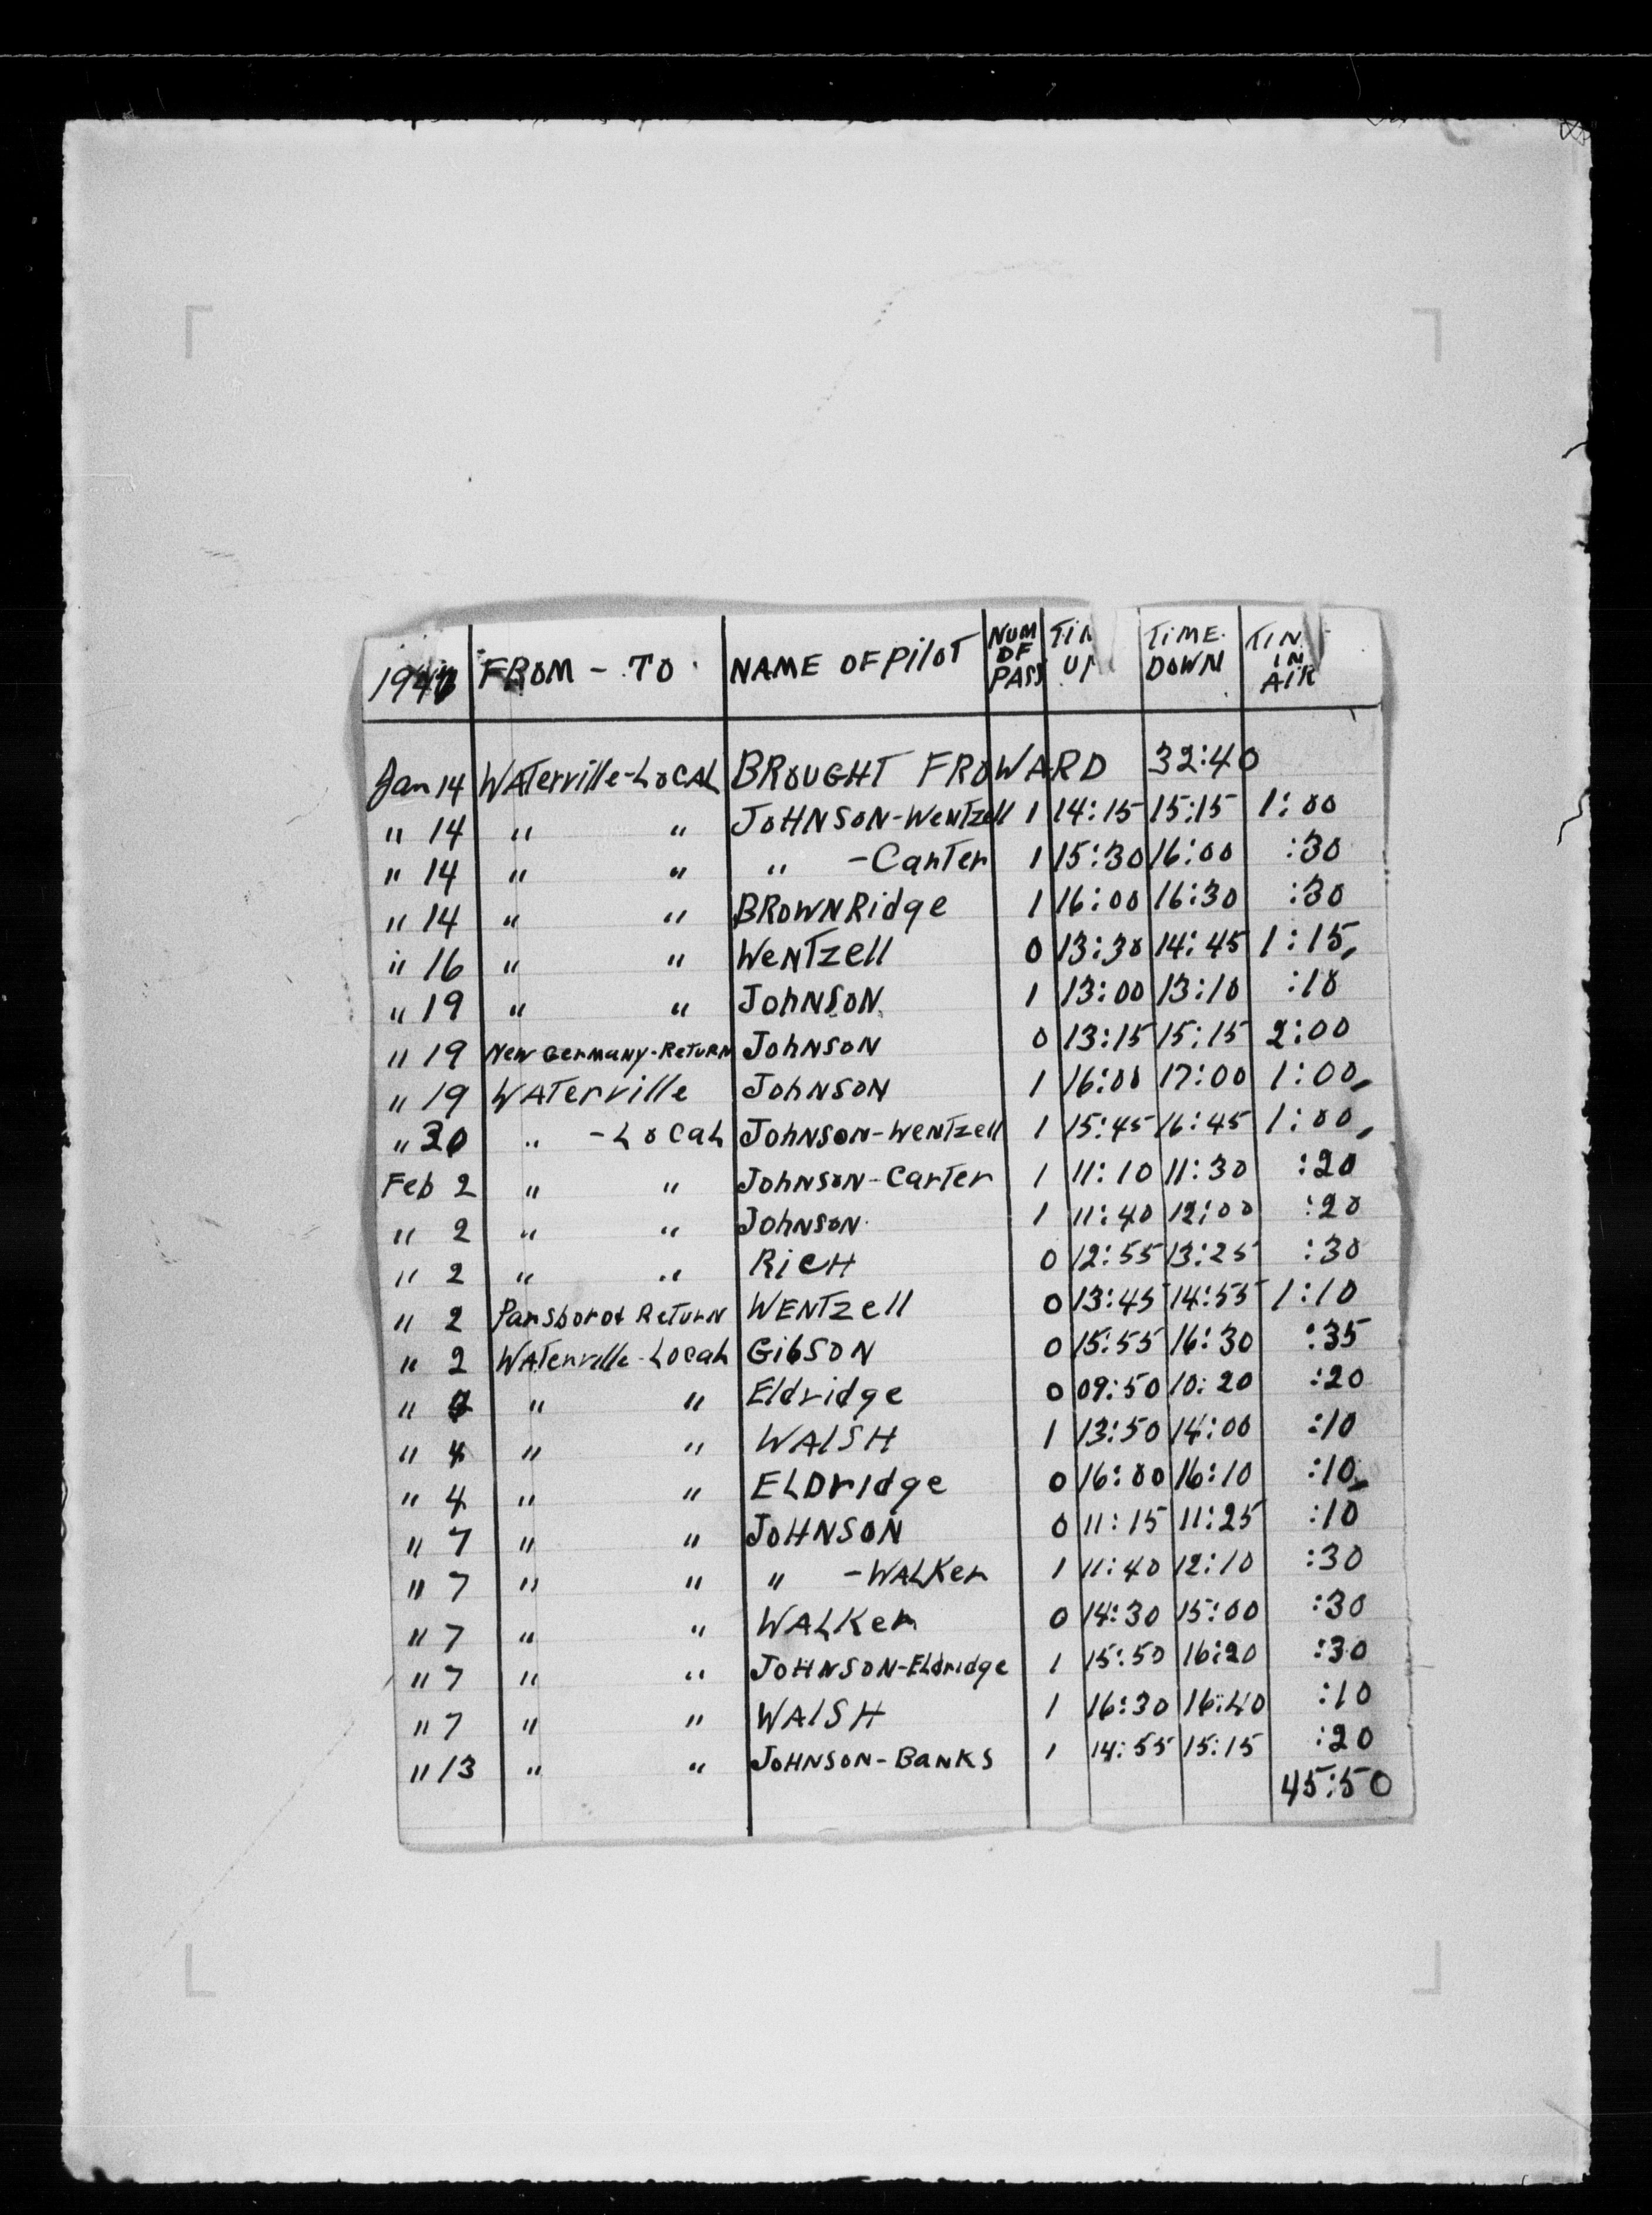 1947 FROM - TO NAME OF PILOT NUM OF PASS TIM UP TIME DOWN TIN IN AIR
Jan 14 WATerville-LocAL BROUGHT FROWARD 32:40
" 14 " " JOHNSON-WeNTzell 1 14:15 15:15 1:00
" 14 " " " -CarTer 1 15:30 16:00 :30
" 14 " " BROWNRidge 1 16:00 16:30 :30
" 16 " " WeNTzell 0 13:30 14:45 1:15,
" 19 " " JohNSON 1 13:00 13:10 :10
" 19 New Germany-ReTURN JohNSON 0 13:15 15:15 2:00
" 19 WATerville JohNSON 1 16:00 17:00 1:00,
" 30 " -LocaL JohNSON-WeNTzell 1 15:45 16:45 1:00,
Feb 2 " " JohNSON-CarTer 1 11:10 11:30 :20
" 2 " " JohNSON 1 11:40 12:00 :20
" 2 " " RicH 0 12:55 13:25 :30
" 2 Parsboro& ReTurN WENTzell 0 13:45 14:55 1:10
" 2 WATerville-LocaL GibSON 0 15:55 16:30 :35
" " " Eldridge 0 09:50 10:20 :20
" 4 " " WAlSH 1 13:50 14:00 :10
" 4 " " ELDridge 0 16:00 16:10 :10,
" 7 " " JOHNSON 0 11:15 11:25 :10
" 7 " " " -WALKer 1 11:40 12:10 :30
" 7 " " WALKer 0 14:30 15:00 :30
" 7 " " JOHNSON-ELdridge 1 15:50 16:20 :30
" 7 " " WAlSH 1 16:30 16:40 :10
" 13 " " JOHNSON-BaNKS 1 14:55 15:15 :20
45:50